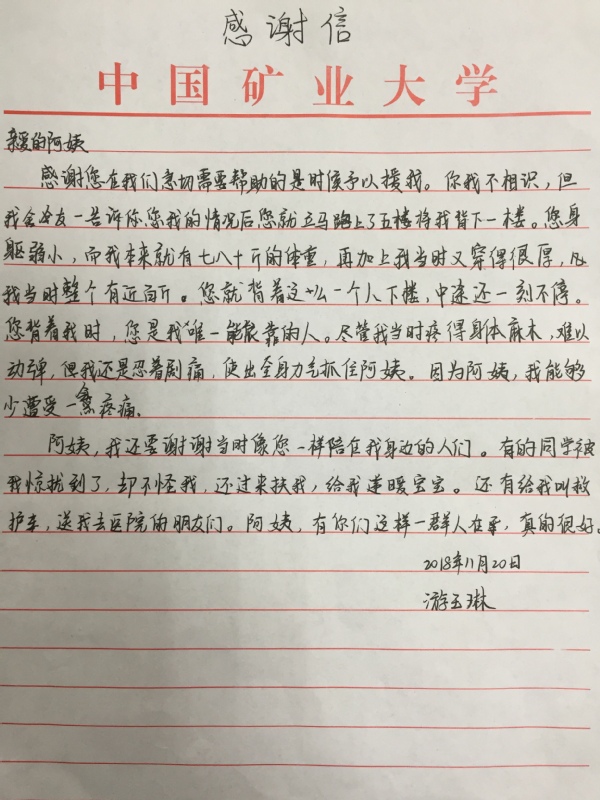 感谢信
中国矿业大学
亲爱的阿姨
感谢您在我们急切需要帮助的是时侯予以援我。你我不相识，但
我舍友一告诉你您我的情况后您就立马跑上了五楼将我背下一楼。您身
躯弱小，而我本来就有七八十斤的体重，再加上我当时又穿得很厚，
我当时整个有近百斤。您就背着这么一个人下楼，中途还一刻不停。
您背着我时，您是我唯一能依靠的人。尽管我当时疼得身体麻木，难以
动弹，但我还是忍着剧痛，使出全身力气抓住阿姨。因为阿姨，我能够
少遭受一些疼痛。
阿姨，我还要谢谢当时像您一样陪在我身边的人们。有的同学被
我惊扰到了，却不怪我，还过来扶我，给我递暖宝宝。还有给我叫救
护车，送我去医院的朋友们。阿姨，有你们这样一群人在，真的很好。
2018年11月20日
游玉琳